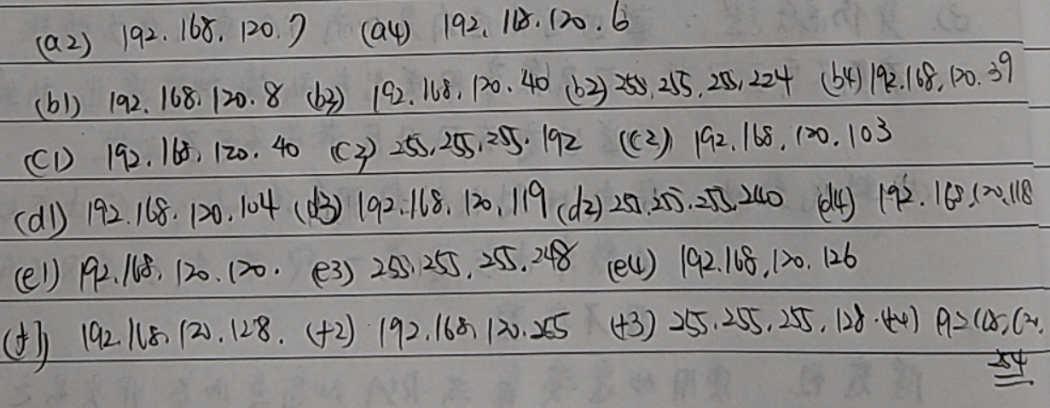 (a2) 192.168.120.7 (a4) 192.168.120.6
(b1) 192.168.120.8 (b3) 192.168.120.40 (b2) 255.255.255.224 (b4) 192.168.120.39
(c1) 192.168.120.40 (c3) 255.255.255.192 (c2) 192.168.120.103
(d1) 192.168.120.104 (d3) 192.168.120.119 (d2) 255.255.255.240 (d4) 192.168.120.118
(e1) 192.168.120.120. (e3) 255.255.255.248 (e4) 192.168.120.126
(f1) 192.168.120.128. (f2) 192.168.120.255 (f3) 255.255.255.128. (f4) 192.168.120.
254